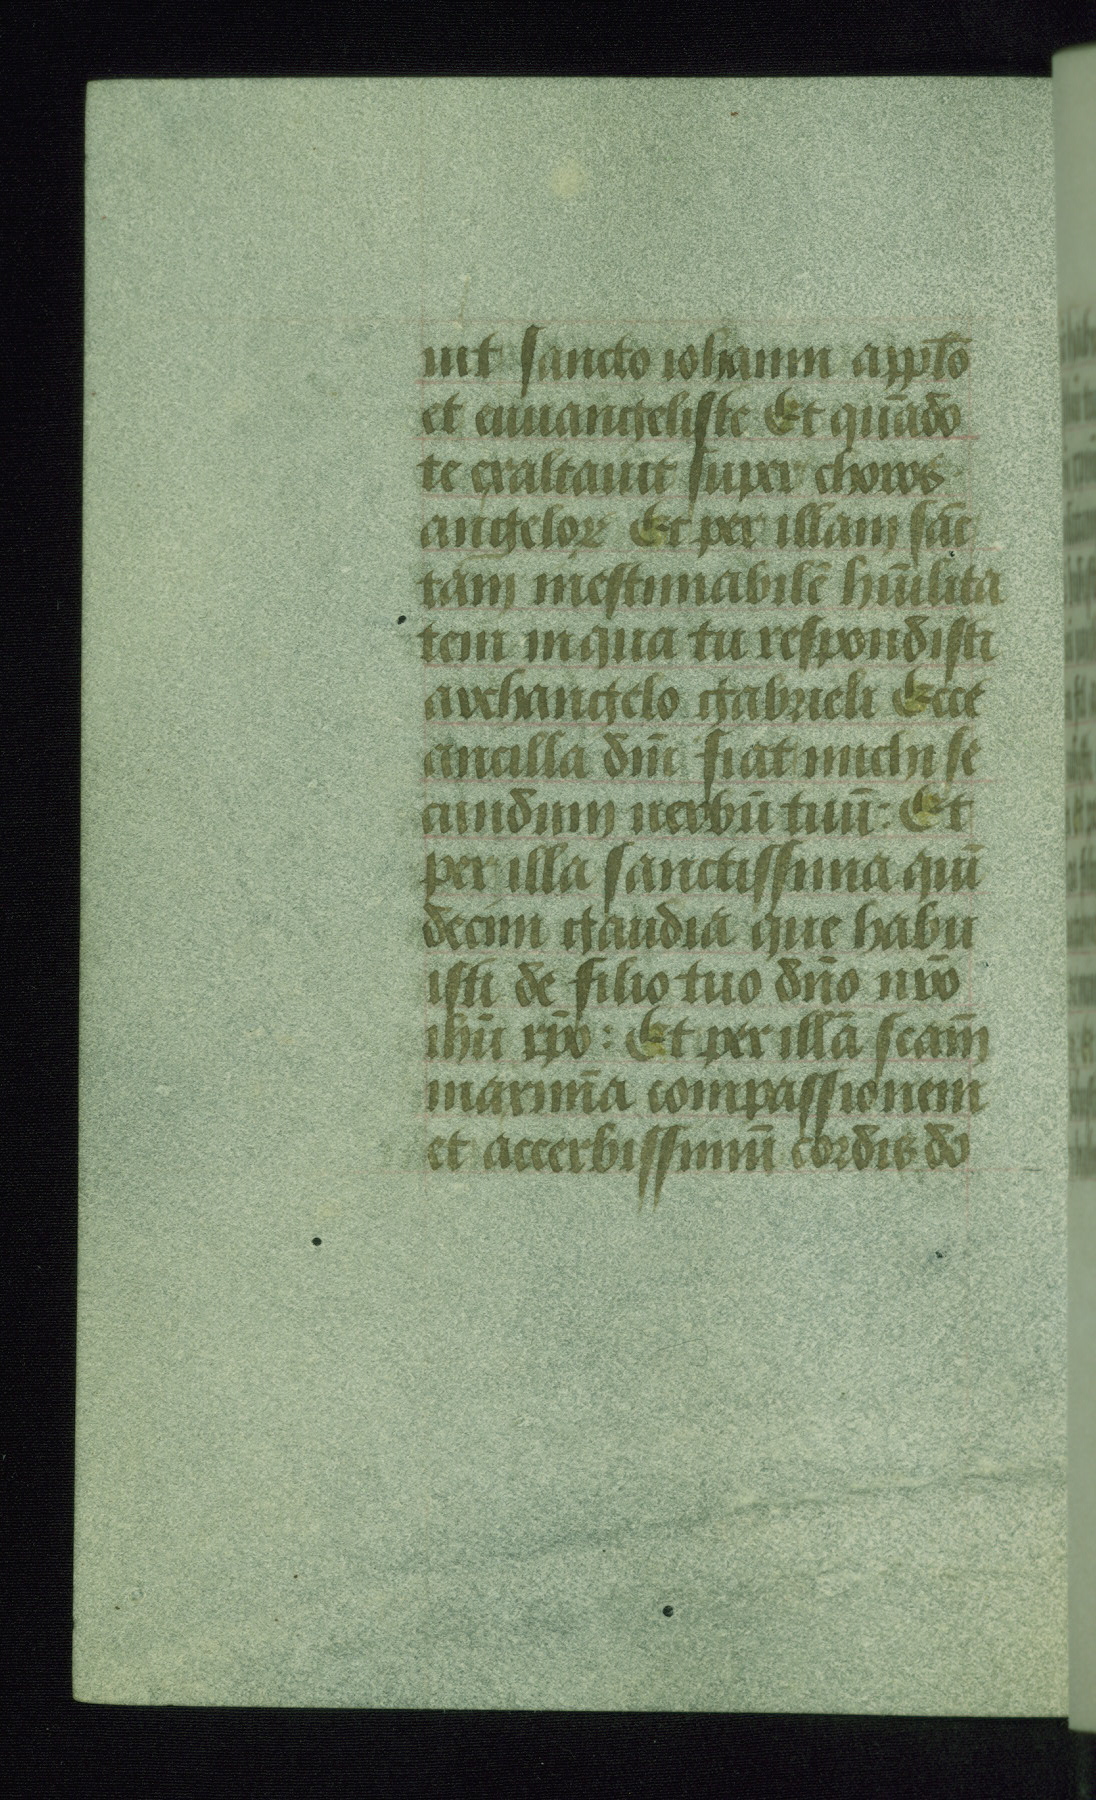 uit sancto iohanni app̄lo
et euuangeliste Et qūado
te exaltauit super choros
angeloꝝ Et per illam sāc
tam inestimabilē hūilita
tem in qua tu respondisti
archangelo gabrieli Ecce
ancilla dn̄i fiat michi se
cundum uerbū tuū: Et
per illa sanctissima quī
decim gaudia que habu
isti de filio tuo dn̄o nr̄o
ihū xp̄o: Et per illā scām̄
maxim̄a compassionem
et accerbissimū cordis do